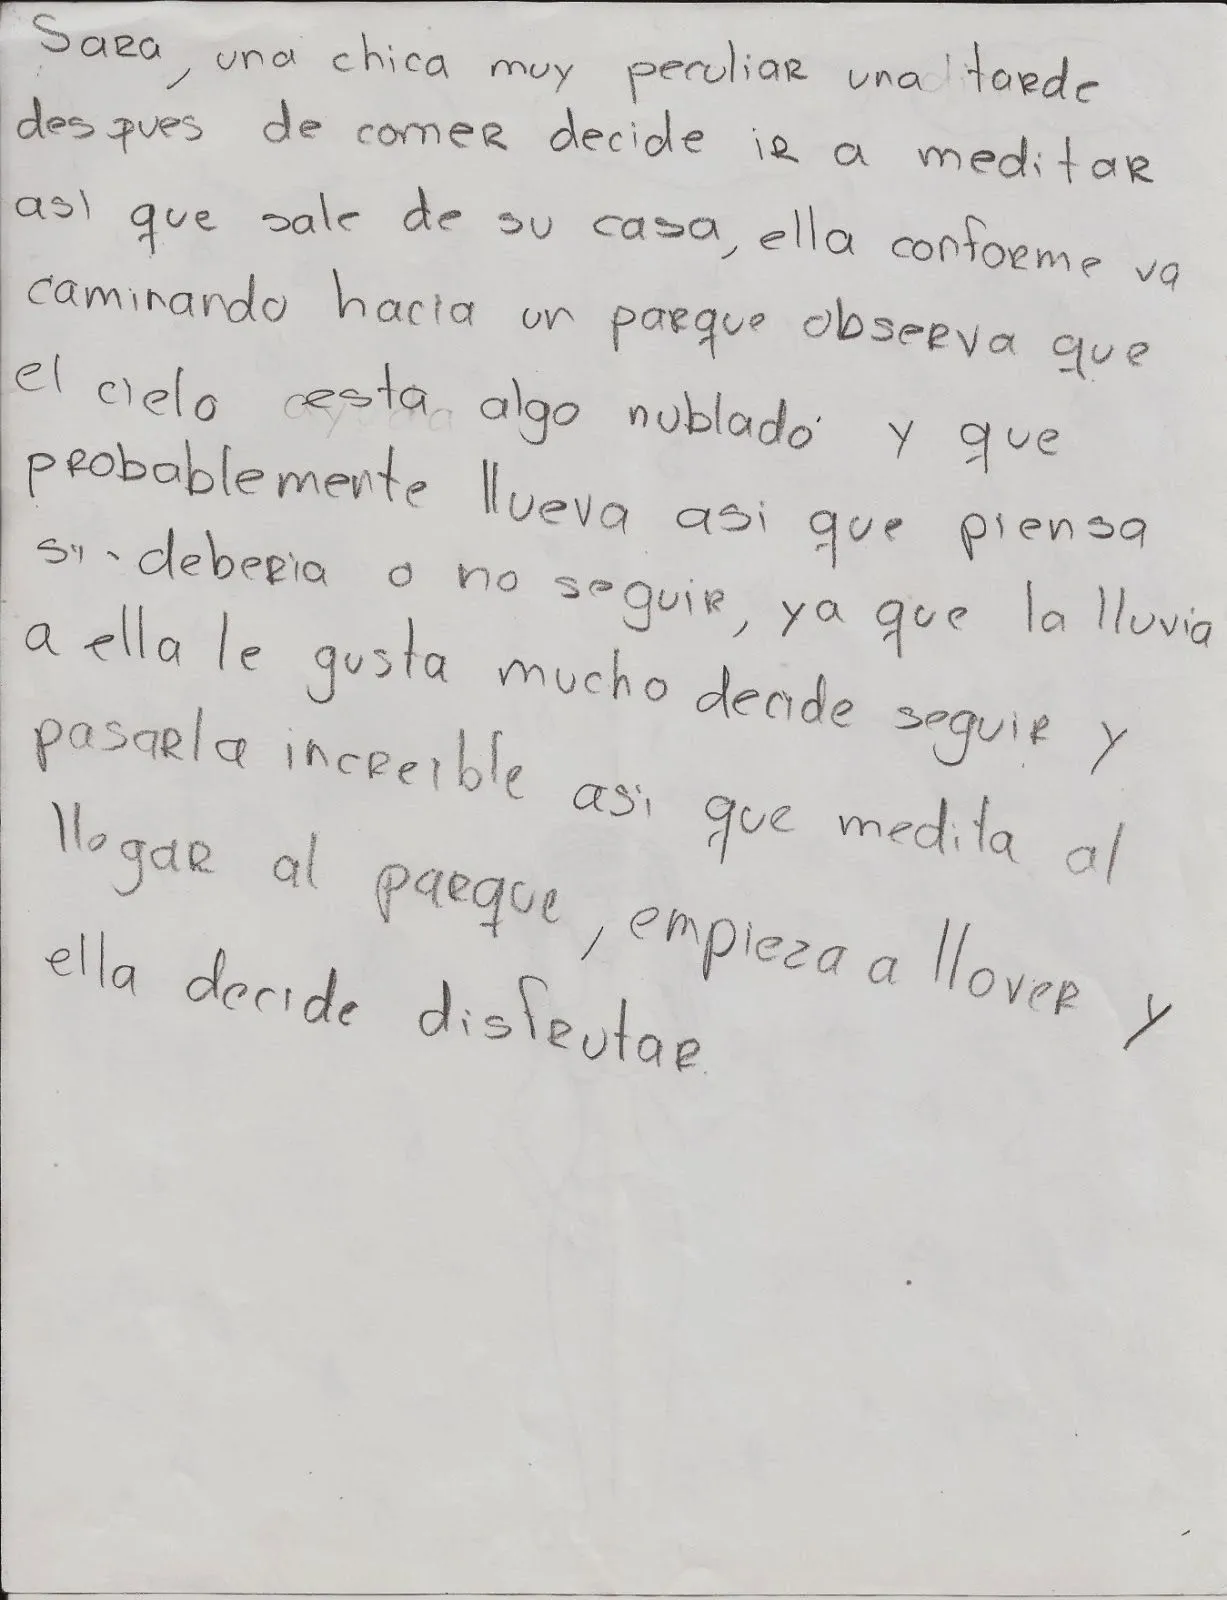 Sara, una chica muy peculiar una tarde
despues de comer decide ir a meditar
asi que sale de su casa, ella conforme va
caminando hacia un parque observa que
el cielo esta algo nublado y que
probablemente llueva asi que piensa
si deberia o no seguir, ya que la lluvia
a ella le gusta mucho decide seguir y
pasarla increible asi que medita al
llegar al parque, empieza a llover y
ella decide disfrutar.